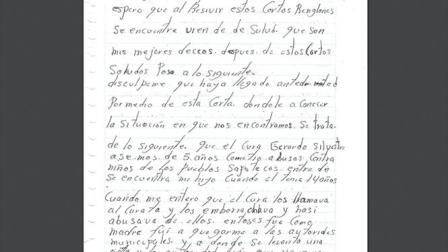 espero que al Resivir estos Cortos Renglones
Se encuentre vien de de Salud. que son
mis mejores deceos. despues. de estos Cortos
Saludos Paso a lo siguiente.
disculpeme que haya llegado ante
Por medio de esta Carta. dondole a Concur
la Situación en que nos encontramos. Se trata
de lo siguiente. que el Cura Gerardo Silvestre
ase mas de 5 años cometio abusos Contra
niños de los Pueblos Sapotecos. entre de
Se encuentra mi hijo Cuando el tenia 14 años
Cuando me entero que el Cura los llamava
al Curato y los emborrachava y hasi
abusava de ellos. entoses fui como
madre fui a quegarme a las autoridas
municipales y a donde se levanto una